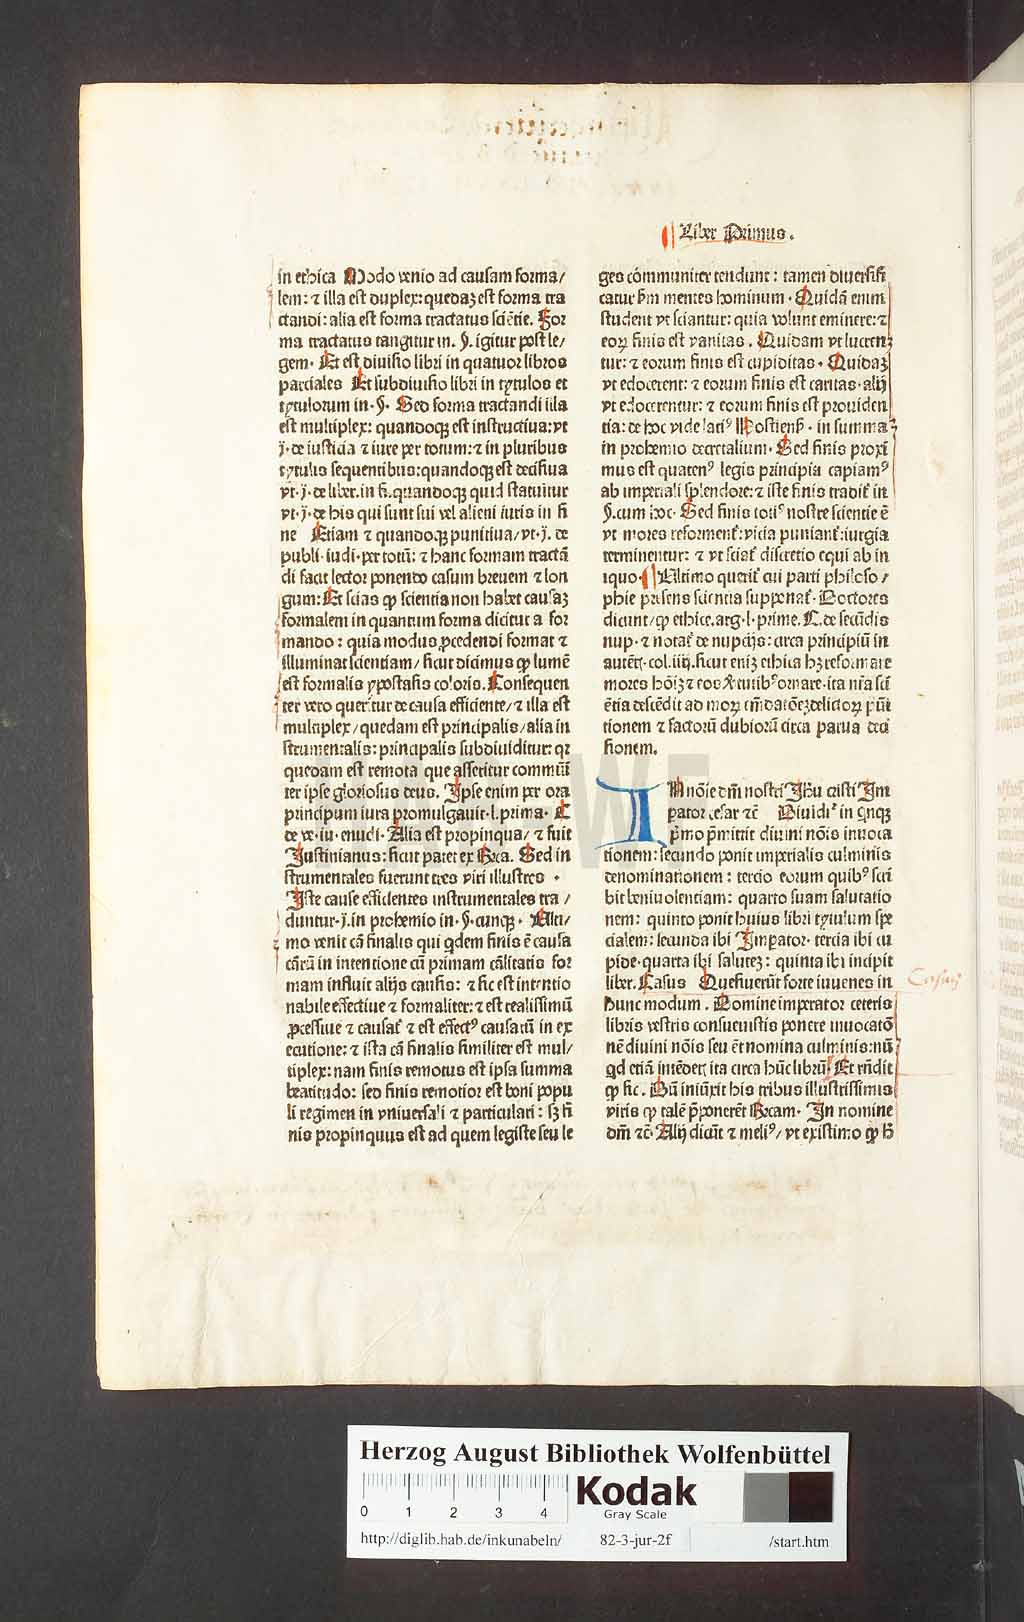 ¶ Liber Primus.
in ethica Modo venio ad causam forma/
lem: ⁊ illa est duplex: quedaꝫ est forma tra
ctandi: alia est forma tractatus sciẽtie. For
ma tractatus tangitur in. §. igitur post le/
gem. Et est diuisio libri in quatuor libros
parciales Et subdiuisio libri in tytulos et
tytulorum in. §. Sed forma tractandi illa
est multiplex: quandoqꝫ est instructiua: vt
j. de iusticia ⁊ iure per totum: ⁊ in pluribus
tytulis sequentibus: quandoqꝫ est decisiua
vt. j. de liber. in fi. quandoqꝫ quid statuitur
vt. j. de his qui sunt sui vel alieni iuris in fi
ne Etiam ⁊ quandoqꝫ punitiua/ vt. j. de
publi. iudi. per totũ: ⁊ hanc formam tractã
di facit lector ponendo casum breuem ⁊ lon
gum: Et scias ꝙ scientia non habet causaꝫ
formalem in quantum forma dicitur a for
mando: quia modus ꝓcedendi format ⁊
illuminat scientiam/ sicut dicimus ꝙ lumẽ
est formalis ypostasis coloris. Consequen
ter vero querit̃ur de causa efficiente/ ⁊ illa est
multiplex/ quedam est principalis/ alia in
strumentalis: principalis subdiuiditur: qꝛ
quedam est remota que asseritur commũi
ter ipse gloriosus deus. Ipse enim per ora
principum iura promulgauit. l. prima. C
de ve. iu. enucl. Alia est propinqua/ ⁊ fuit
Justinianus: sicut patet ex Rca. Sed in
strumentales fuerunt tres viri illustres .
Iste cause efficientes instrumentales tra /
duntur. j. in prohemio in. §. cunqꝫ. Ulti/
mo venit cã finalis qui q̃dem finis ẽ causa
cãrũ in intentione cũ primam cãlitatis for
mam influit alijs causis: ⁊ sic est intentio
nabile effectiue ⁊ formaliter: ⁊ est realissimũ
ꝓcessiue ⁊ causat̃ ⁊ est effectꝰ causarũ in ex
ecutione: ⁊ ista cã finalis similiter est mul/
tiplex: nam finis remotus est ipsa summa
beatitudo: sed finis remotior est boni popu
li regimen in vniuersali ⁊ particulari: sꝫ fi
nis propinquus est ad quem legiste seu le
ges cõmuniter tendunt: tamen diuersifi
catur ẜm mentes hominum. Quidã enim
student vt sciantur: quia volunt eminere: ⁊
eoꝝ finis est vanitas. Quidam vt lucren
tur: ⁊ eorum finis est cupiditas. Quidaꝫ
vt edocerent: ⁊ eorum finis est caritas. alij
vt edocerentur: ⁊ eorum finis est prouiden
tia: de hoc vide latiꝰ Hostienẜ. in summa
in prohemio decretalium. Sed finis proxi
mus est quatenꝰ legis principia capiamꝰ
ab imperiali splendore: ⁊ iste finis tradit̃ in
§. cum hoc. Sed finis totiꝰ nostre scientie ẽ
vt mores reforment̃: vicia puniant̃: iurgia
terminentur: ⁊ vt sciat̃ discretio equi ab in
iquo. ¶ Ultimo querit̃ cui parti philoso /
phie presens scientia supponat̃. Doctores
dicunt/ ꝙ ethice. arg. l. prime. C. de secũdis
nup. ⁊ notat̃ de nupcijs: circa principiũ in
autẽt. col. iiij. sicut enĩꝫ ethica hꝫ reformare
mores hoĩꝫ ⁊ eos ꝟtutibꝰ ornare. ita nr̃a sci
ẽtia descẽdit ad moꝝ cm̃datõeꝫ delictoꝝ puni
tionem ⁊ factorũ dubiorũ circa parua deci
sionem.
IN noĩe dm̃ nostri Jh̃u cristi Im
pator cesar ⁊c̃ Diuidit̃ in q̃nqꝫ
p̃mo p̃mittit diuini noĩs inuoca
tionem: secundo ponit imperialis culminis
denominationem: tercio eorum quibꝰ scri
bit beniuolentiam: quarto suam salutatio
nem: quinto ponit huius libri tytulum spe
cialem: secunda ibi Imperator. tercia ibi cu
pide. quarta ibi saluteꝫ: quinta ibi incipit
liber. Casus Quesiuerũt forte iuuenes in
hunc modum. Domine imperator ceteris
libris vestris consueuistis ponere inuocatõ
nẽ diuini noĩs seu ẽt nomina culminis: nũ
qd etiã intẽdet̃ ita circa hũc librũ. Et rñdit
ꝙ sic. Vñ iniũxit his tribus illustrissimus
viris ꝙ talẽ p̃ponerẽt Rcam. In nomine
dm̃ ⁊c̃. Alij dicũt ⁊ meliꝰ/ vt existimo ꝙ h̃
Casus
HAB-WF
Herzog August Bibliothek Wolfenbüttel
0 1 2 3 4
Kodak
Gray Scale
http://diglib.hab.de/inkunabeln/ 82-3-jur-2f /start.htm